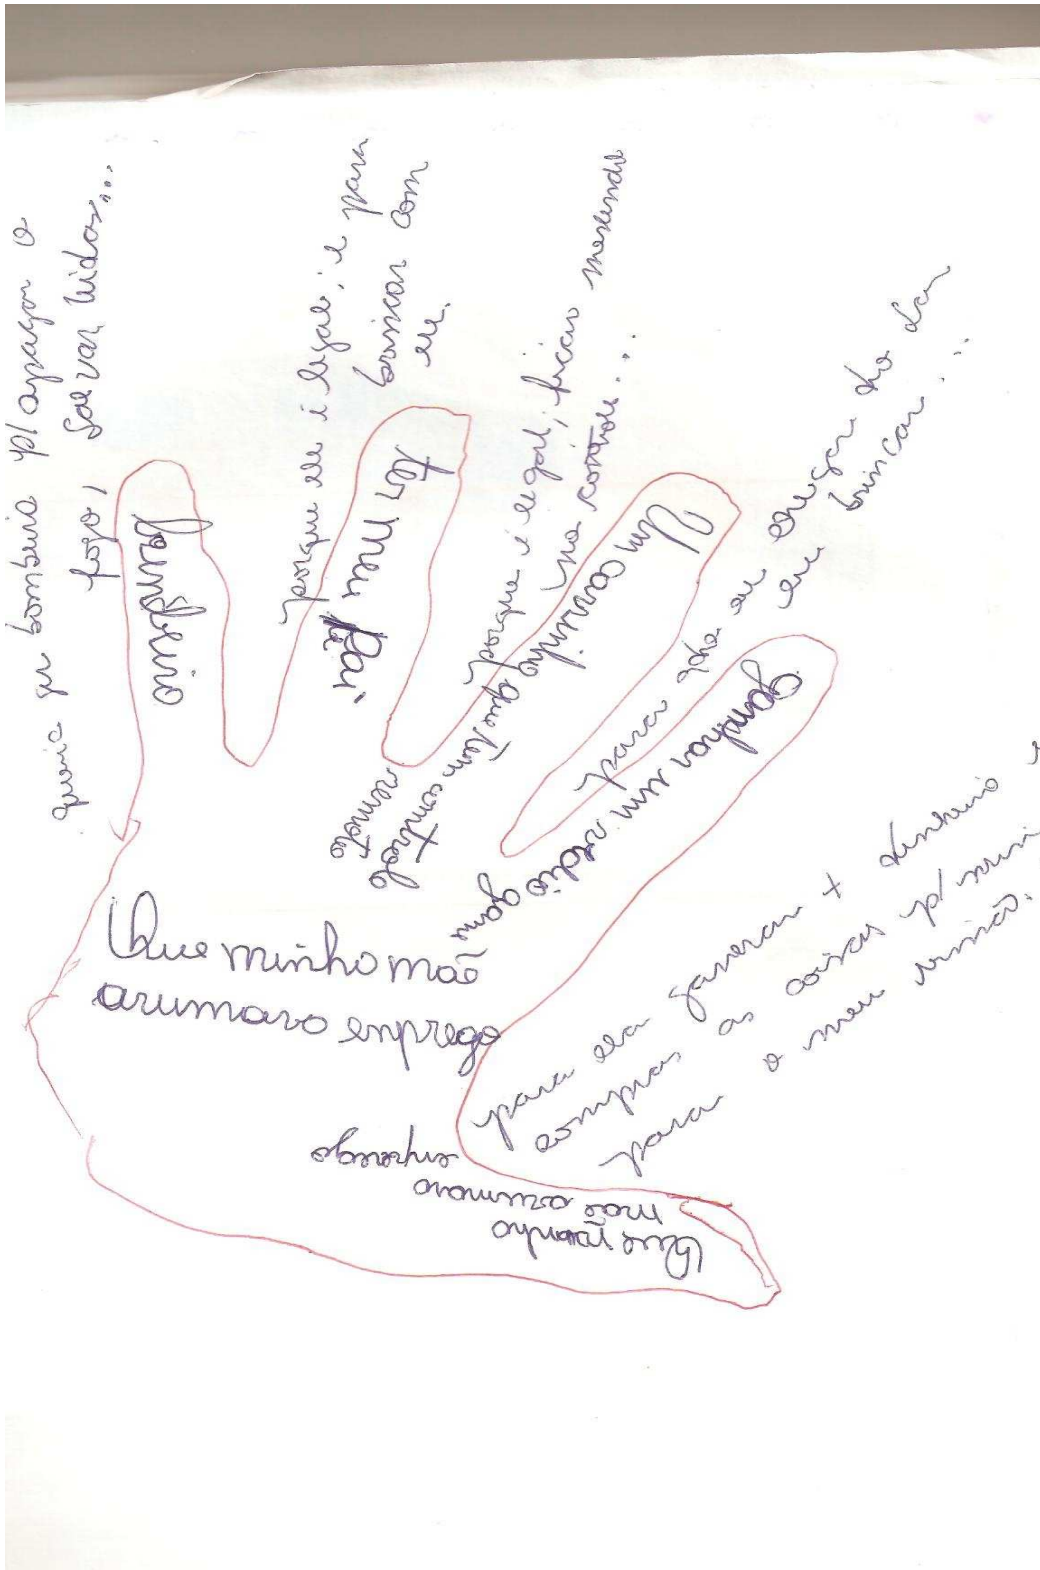 queria ser bombeiro p/ apagar o
fogo, salvar vidas...
bombeiro
porque ele é legal, e para
brincar com
ele.
ter meu Pai
porque é legal, ficar mexendo
no controle...
Um carrinho que tem controle
remoto
para
eu
brincar...
Ganhar um vidio game
Que minho mãe
arumaro emprego
para ela ganharem + dinheiro
comprar as coisas p/ mim
para o meu irmão.
Que minho
mãe arumaro
enprego